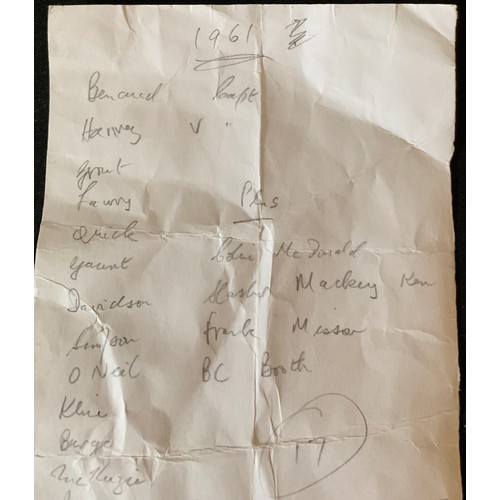 1961
Benaud Capt
Harvey V "
Grout
Lawry Plus
Quick
Gaunt Colin McDonald
Davidson Slasher Mackay Ken
Simpson Frank Misson
O Neil BC Booth
Kline
Burge
McKenzie
17